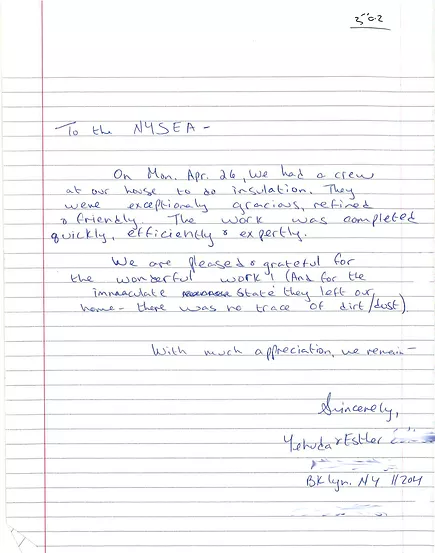 To the NYSEA -
On Mon. Apr. 26, we had a crew
at our house to do insulation. They
were exceptionaly gracious, refined
& friendly. The work was completed
quickly, efficiently & expertly.
We are pleased & grateful for
the wonderful work! (And for the
immaculate state they left our
home - there was no trace of dirt/dust).
With much appreciation, we remain -
Sincerely,
Yehuda & Esther
BKlyn. NY 11204